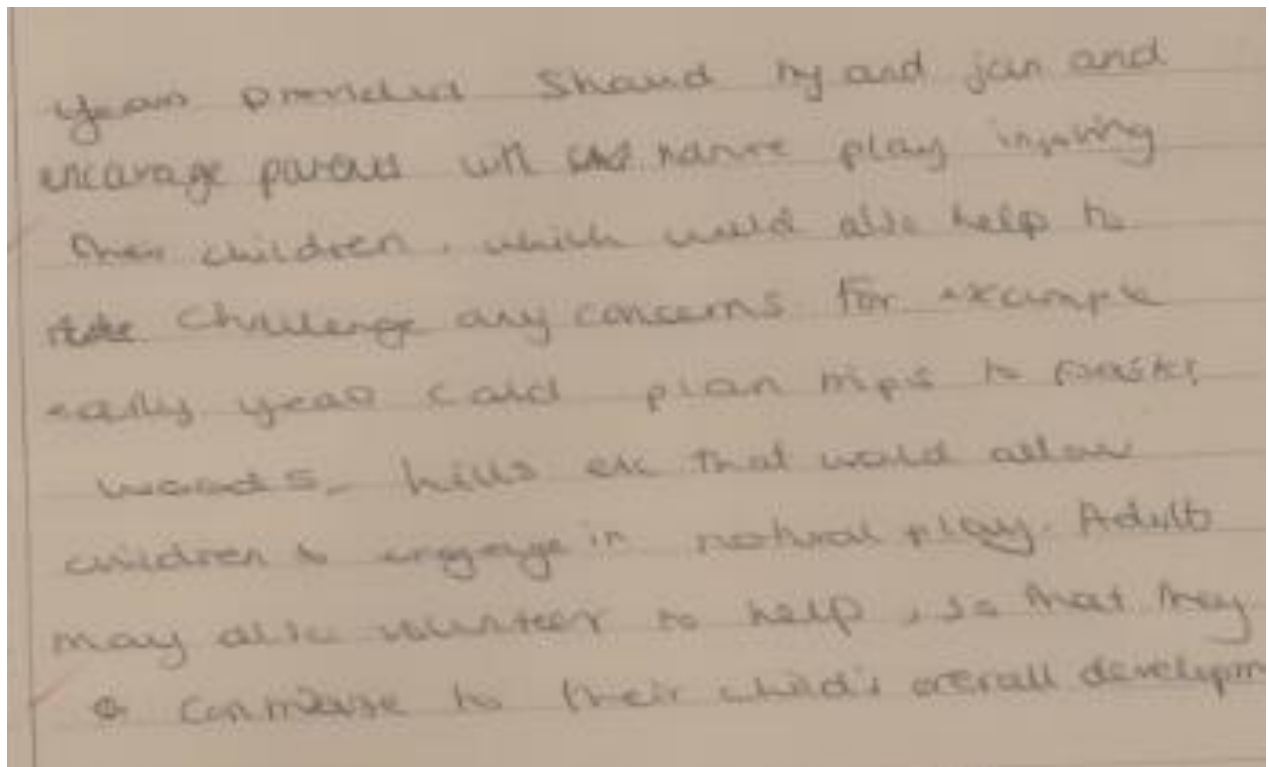 years provided Shaud try and join and
encarage parents with nature play involving
their children, which would also help to
challenge any concerns for example
early years cald plan trips to forests,
woods, hills etc that would allow
children to engage in natural play. Adults
may also volunteer to help, so that they
contribute to their child's overall developm